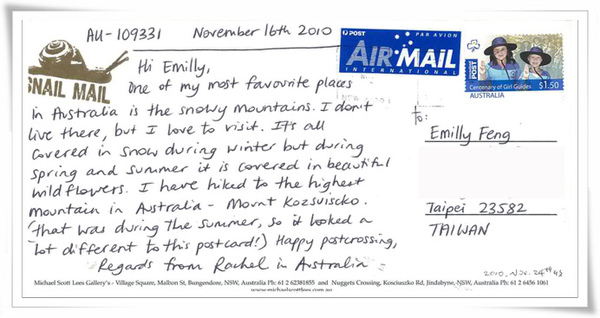 AU-109331 November 16th 2010
SNAIL MAIL
POST PAR AVION
AIR MAIL
INTERNATIONAL
POST
Centenary of Girl Guides
$1.50
AUSTRALIA
Hi Emilly,
One of my most favourite places
in Australia is the snowy mountains. I don't
live there, but I love to visit. It's all
covered in snow during winter but during
spring and summer it is covered in beautiful
wildflowers. I have hiked to the highest
mountain in Australia - Mount Kozsuiscko
(that was during the summer, so it looked a
lot different to this postcard!) Happy postcrossing,
Regards from Rachel in Australia
to:
Emilly Feng
Taipei 23582
TAIWAN
2010. Nov. 24th
Michael Scott Lees Gallery's - Village Square, Malbon St, Bungendore, NSW, Australia Ph: 61 2 62381855 and Nuggets Crossing, Kosciuszko Rd, Jindabyne, NSW, Australia Ph: 61 2 6456 1061
www.michaelscottlees.com.au